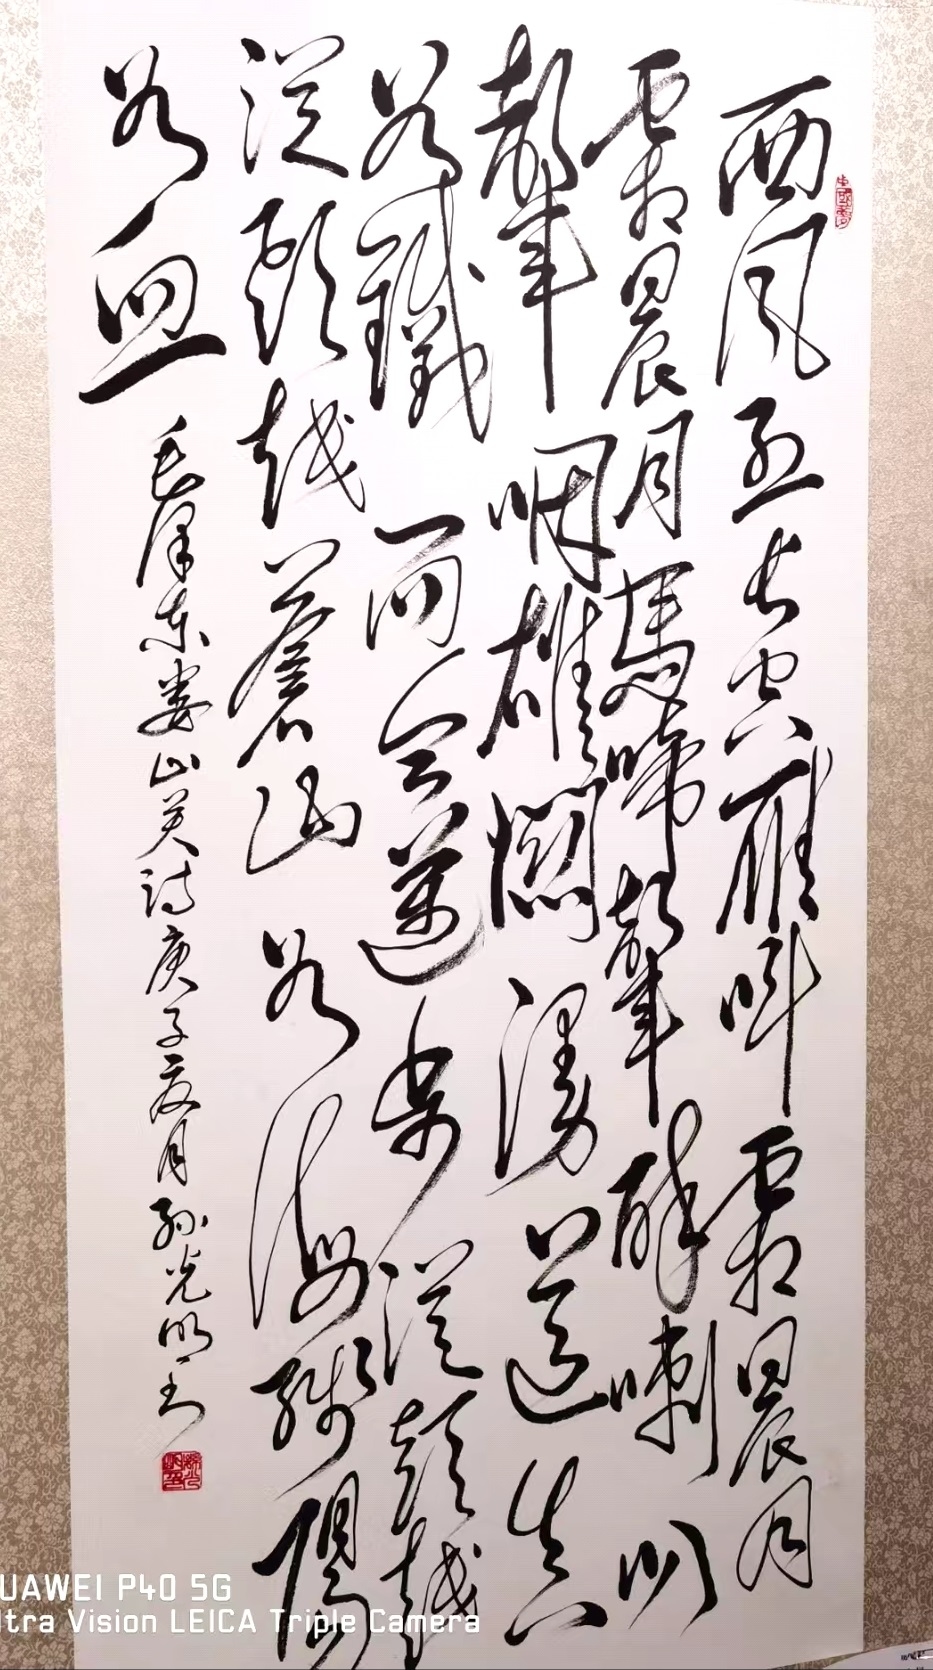 西風烈长空雁叫霜晨月
霜晨月馬啼聲碎喇叭
聲咽雄關漫道真
如鐵而今邁步從頭越
從頭越蒼山如海殘陽
如血
毛澤东娄山关诗庚子夏月孙光明
中國夢
UAWEI P40 5G
ltra Vision LEICA Triple Camera